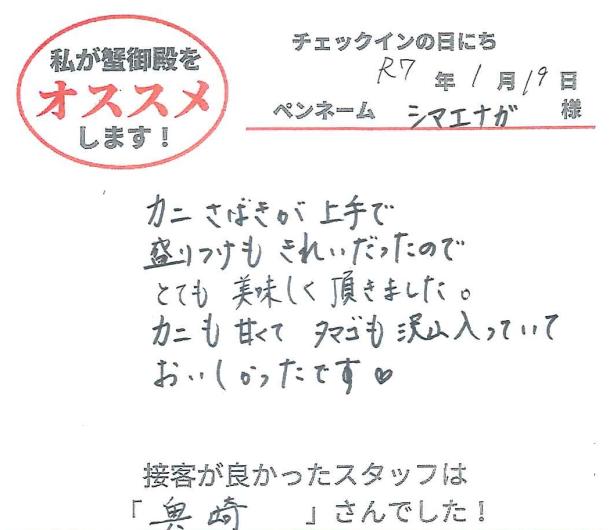 私が蟹御殿を
オススメ
します！
チェックインの日にち
R7 年 1 月 19 日
ペンネーム シマエナガ 様
カニさばきが上手で
盛りつけもきれいだったので
とても美味しく頂きました。
カニも甘くて タマゴも沢山入っていて
おいしかったです♥
接客が良かったスタッフは
「奥崎」さんでした！